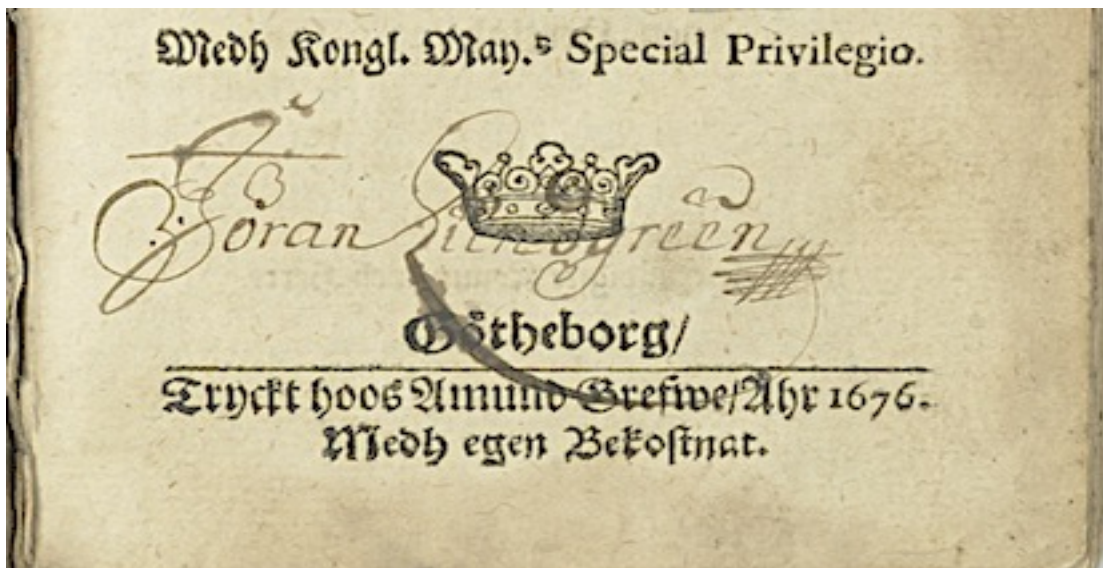 Medh Kongl. May.ᵗˢ Special Privilegio.
Jöran
Götheborg/
Tryckt hoos Amund Grefwe/Ahr 1676.
Medh egen Bekostnat.